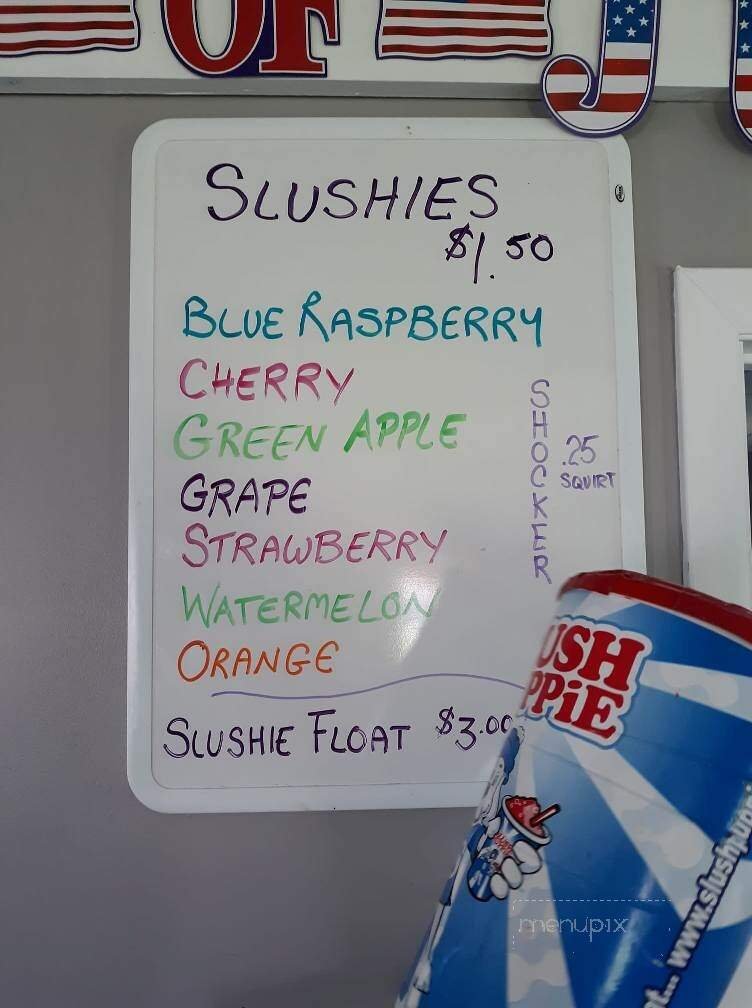 OF J
SLUSHIES
$1.50
BLUE RASPBERRY
CHERRY
GREEN APPLE
GRAPE
STRAWBERRY
WATERMELON
ORANGE
SHOCKER
.25
SQUIRT
SLUSHIE FLOAT $3.00
USH
PPiE
www.slushpup
menupix